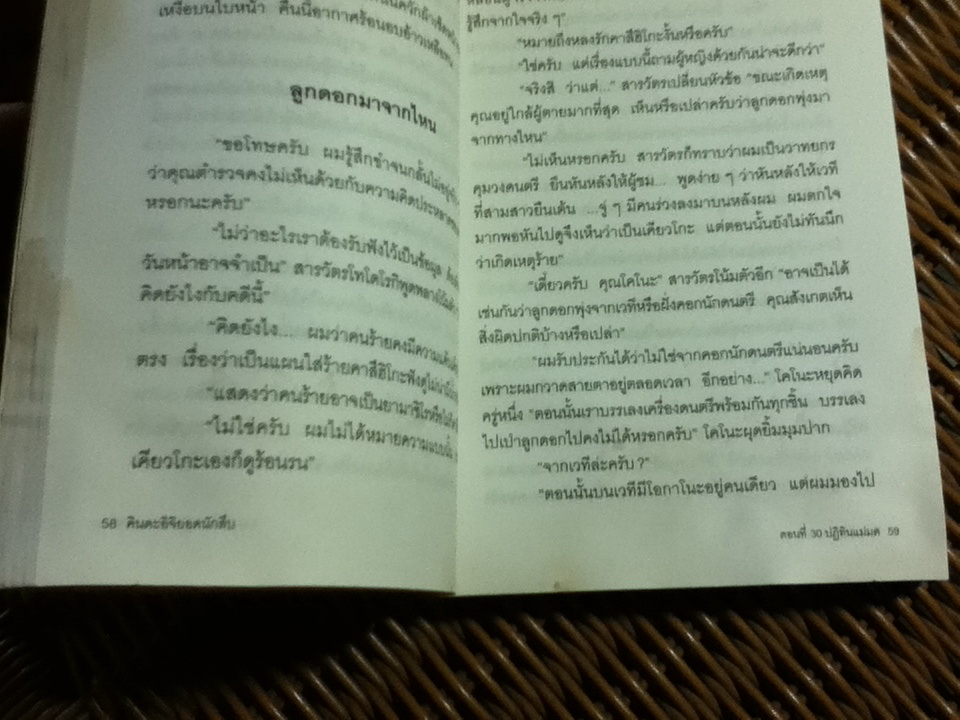 เหงื่อบนใบหน้า คืนนี้อากาศร้อนอบอ้าวเหลือทน
ลูกดอกมาจากไหน
"ขอโทษครับ ผมรู้สึกขำจนกลั้นไม่อยู่
ว่าคุณตำรวจคงไม่เห็นด้วยกับความคิดประหลาด
หรอกนะครับ"
"ไม่ว่าอะไรเราต้องรับฟังไว้เป็นข้อมูล
วันหน้าอาจจำเป็น" สารวัตรโทโดโรกิพูดพลาง
คิดยังไงกับคดีนี้"
"คิดยังไง... ผมว่าคนร้ายคงมีความ
ตรง เรื่องว่าเป็นแผนใส่ร้ายคาสึฮิโกะฟังดูไม่
"แสดงว่าคนร้ายอาจเป็นยามาชิโร
"ไม่ใช่ครับ ผมไม่ได้หมายความแบบนั้น
เคียวโกะเองก็ดูร้อนรน"
58 คินดะอิจิยอดนักสืบ
รู้สึกจากใจจริง ๆ"
"หมายถึงหลงรักคาสึฮิโกะงั้นหรือครับ"
"ใช่ครับ แต่เรื่องแบบนี้ถามผู้หญิงด้วยกันน่าจะดีกว่า"
"จริงสิ ว่าแต่..." สารวัตรเปลี่ยนหัวข้อ "ขณะเกิดเหตุ
คุณอยู่ใกล้ผู้ตายมากที่สุด เห็นหรือเปล่าครับว่าลูกดอกพุ่งมา
จากทางไหน"
"ไม่เห็นหรอกครับ สารวัตรก็ทราบว่าผมเป็นวาทยกร
คุมวงดนตรี ยืนหันหลังให้ผู้ชม... พูดง่าย ๆ ว่าหันหลังให้เวที
ที่สามสาวยืนเต้น ...จู่ ๆ มีคนร่วงลงมาบนหลังผม ผมตกใจ
มากพอหันไปดูจึงเห็นว่าเป็นเคียวโกะ แต่ตอนนั้นยังไม่ทันนึก
ว่าเกิดเหตุร้าย"
"เดี๋ยวครับ คุณโคโนะ" สารวัตรโน้มตัวอีก "อาจเป็นได้
เช่นกันว่าลูกดอกพุ่งจากเวทีหรือฝั่งคอกนักดนตรี คุณสังเกตเห็น
สิ่งผิดปกติบ้างหรือเปล่า"
"ผมรับประกันได้ว่าไม่ใช่จากคอกนักดนตรีแน่นอนครับ
เพราะผมกวาดสายตาอยู่ตลอดเวลา อีกอย่าง..." โคโนะหยุดคิด
ครู่หนึ่ง "ตอนนั้นเราบรรเลงเครื่องดนตรีพร้อมกันทุกชิ้น บรรเลง
ไปเป่าลูกดอกไปคงไม่ได้หรอกครับ" โคโนะผุดยิ้มมุมปาก
"จากเวทีล่ะครับ?"
"ตอนนั้นบนเวทีมีโอกาโนะอยู่คนเดียว แต่ผมมองไป
ตอนที่ 30 ปฏิทินแม่มด 59